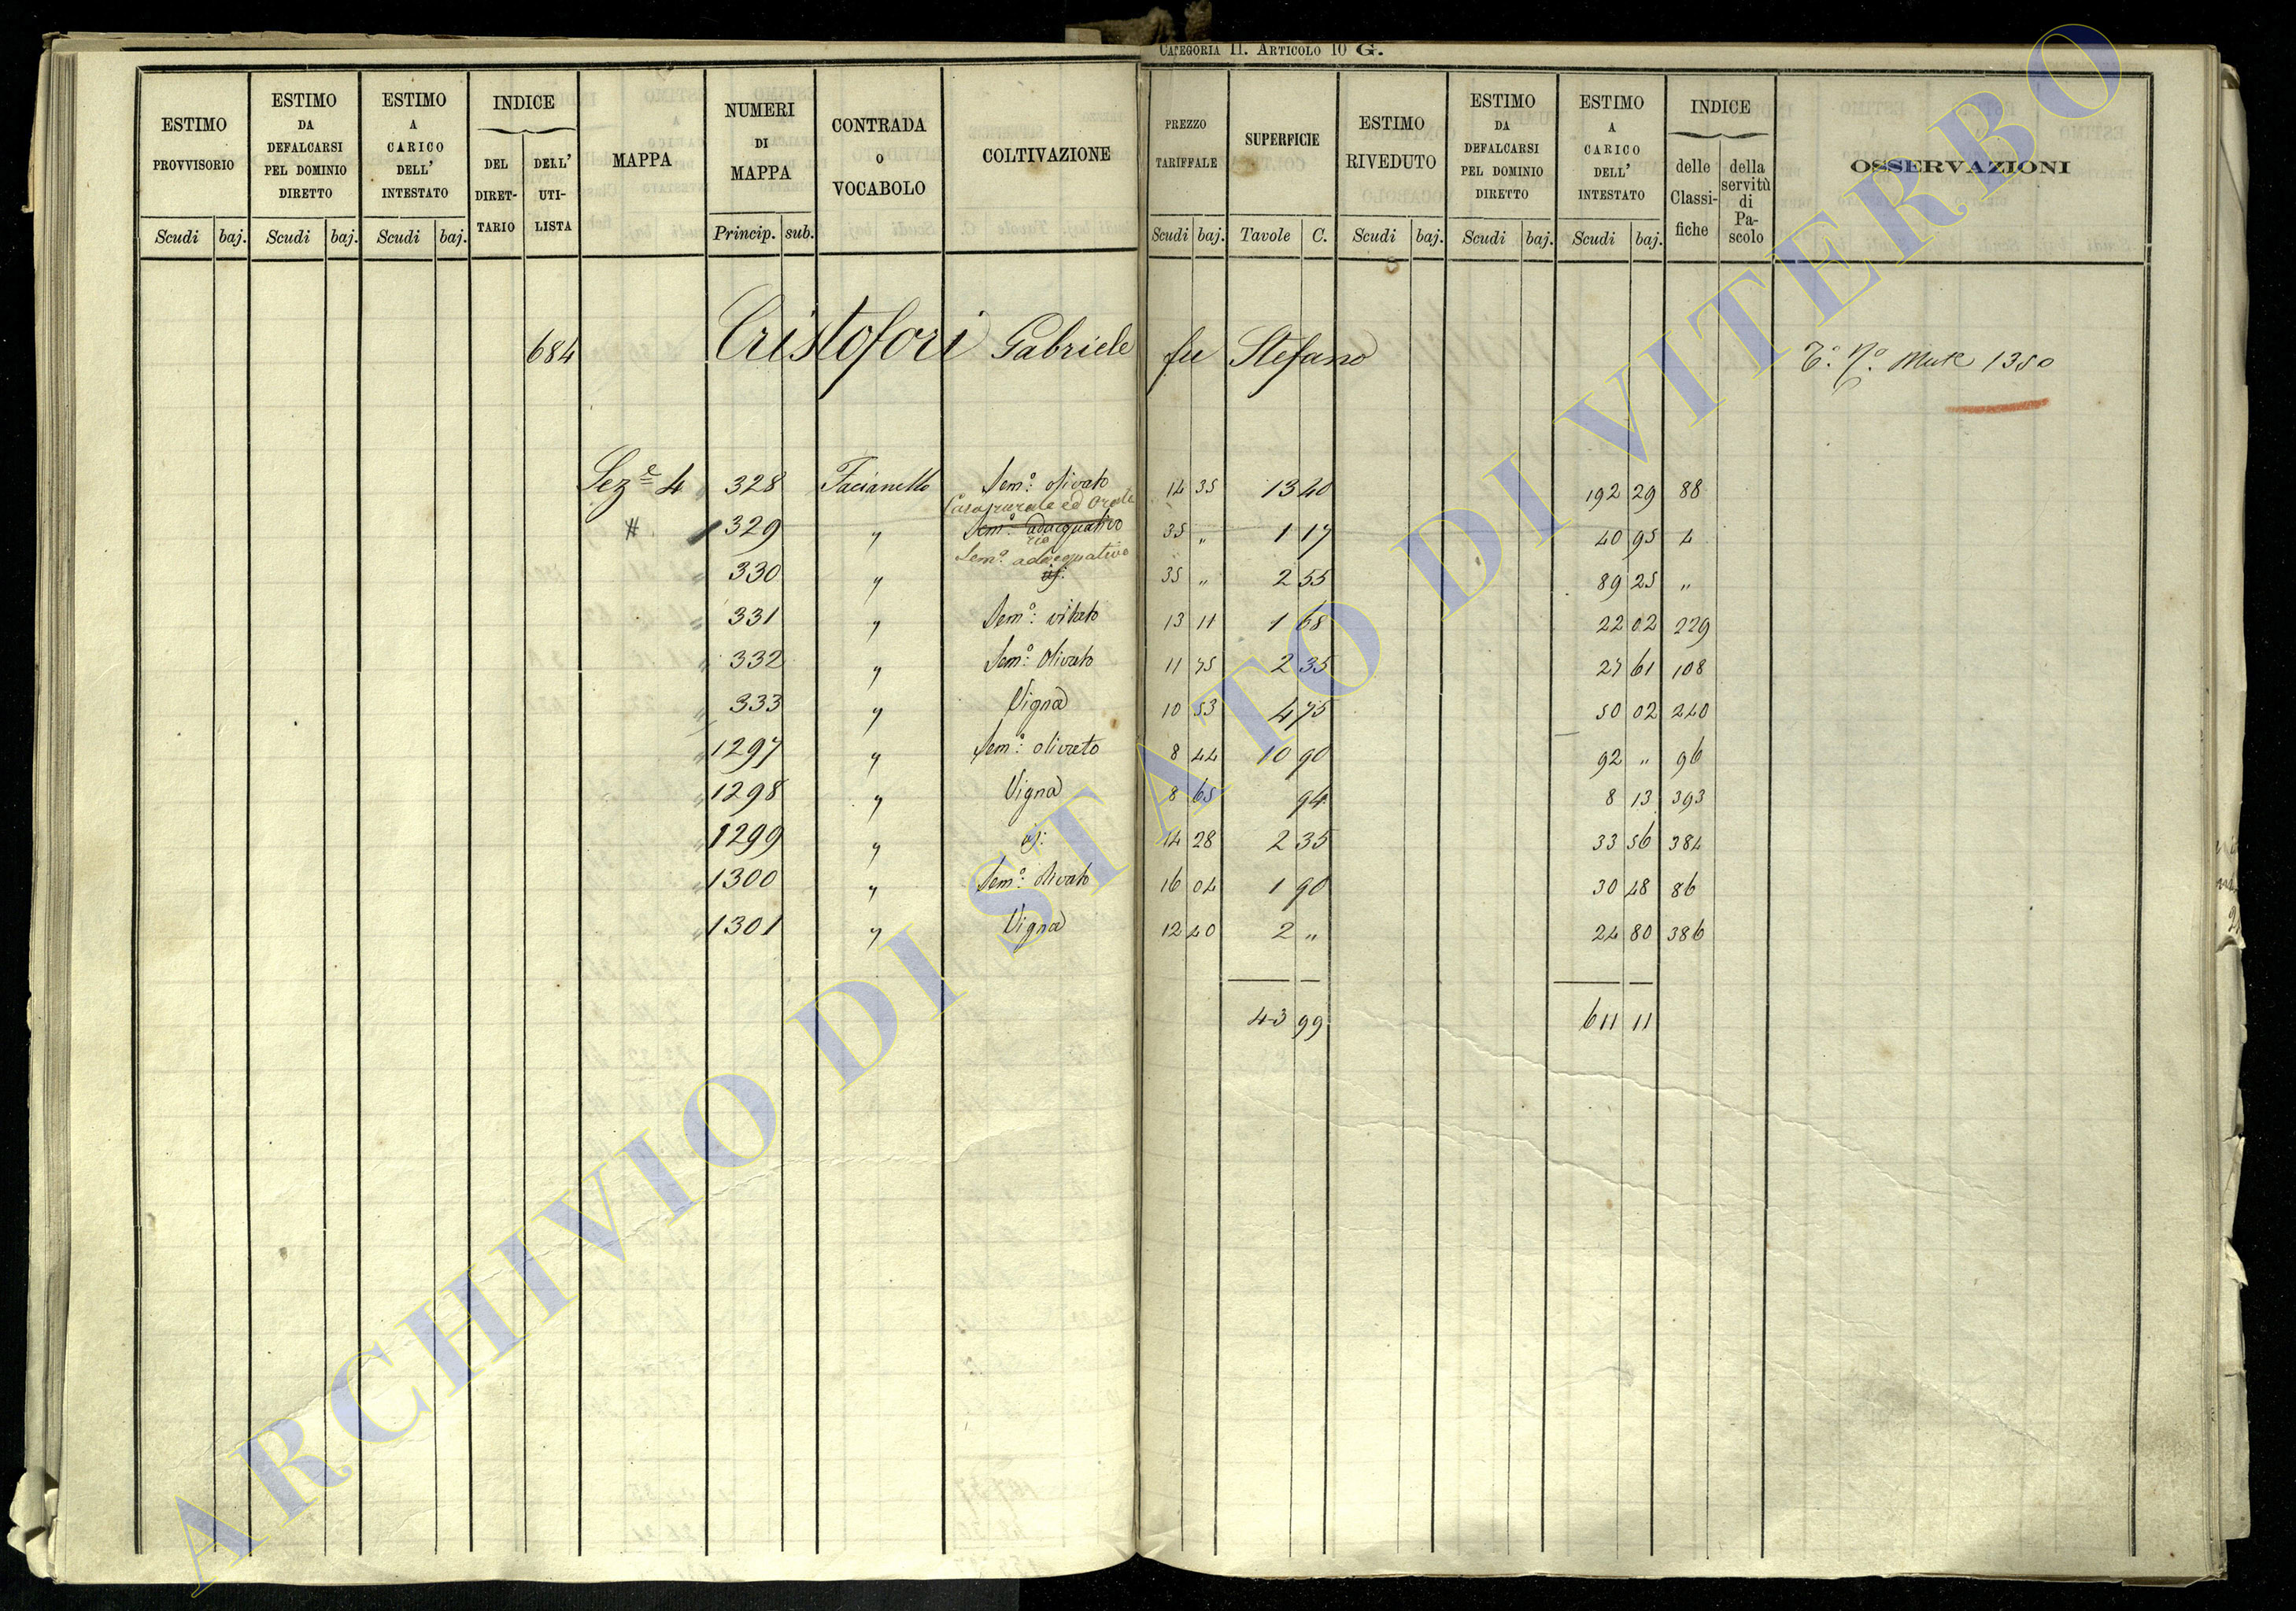 CATEGORIA II. ARTICOLO 10 G.
ESTIMO PROVVISORIO | ESTIMO DA DEFALCARSI PEL DOMINIO DIRETTO | ESTIMO A CARICO DELL' INTESTATO | INDICE DEL DIRETTARIO | DELL' UTILISTA | MAPPA | NUMERI DI MAPPA | CONTRADA O VOCABOLO | COLTIVAZIONE | PREZZO TARIFFALE | SUPERFICIE | ESTIMO RIVEDUTO | ESTIMO DA DEFALCARSI PEL DOMINIO DIRETTO | ESTIMO A CARICO DELL' INTESTATO | INDICE delle Classifiche | della servitù di Pascolo | OSSERVAZIONI
Scudi baj. Scudi baj. Scudi baj. Princip. sub. Scudi baj. Tavole C. Scudi baj. Scudi baj. Scudi baj.
684 Cristofori Gabriele fu Stefano 1350
Sez.e 4 328 Sem.o olivato 14 35 13 40 192 29 88
Casa rurale ed
329 " Sem.o adacquativo 35 " 1 17 40 95 4
Sem.o adacquativo
330 " 35 " 2 55 89 25 "
331 " Sem.o vitato 13 11 1 68 22 02 229
332 " Sem.o Olivato 11 75 2 35 27 61 108
333 " Vigna 10 53 4 75 50 02 240
1297 " Sem.o olivato 8 44 10 90 92 " 96
1298 " Vigna 8 65 94 8 13 393
1299 " 14 28 2 35 33 56 384
1300 " Sem.o olivato 16 04 1 90 30 48 86
1301 " Vigna 12 40 2 " 24 80 386
43 99 611 11
ARCHIVIO DI STATO DI VITERBO